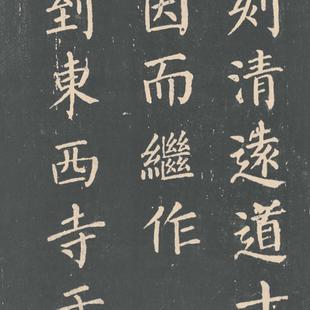 刻清遠道士
因而繼作
到東西寺于